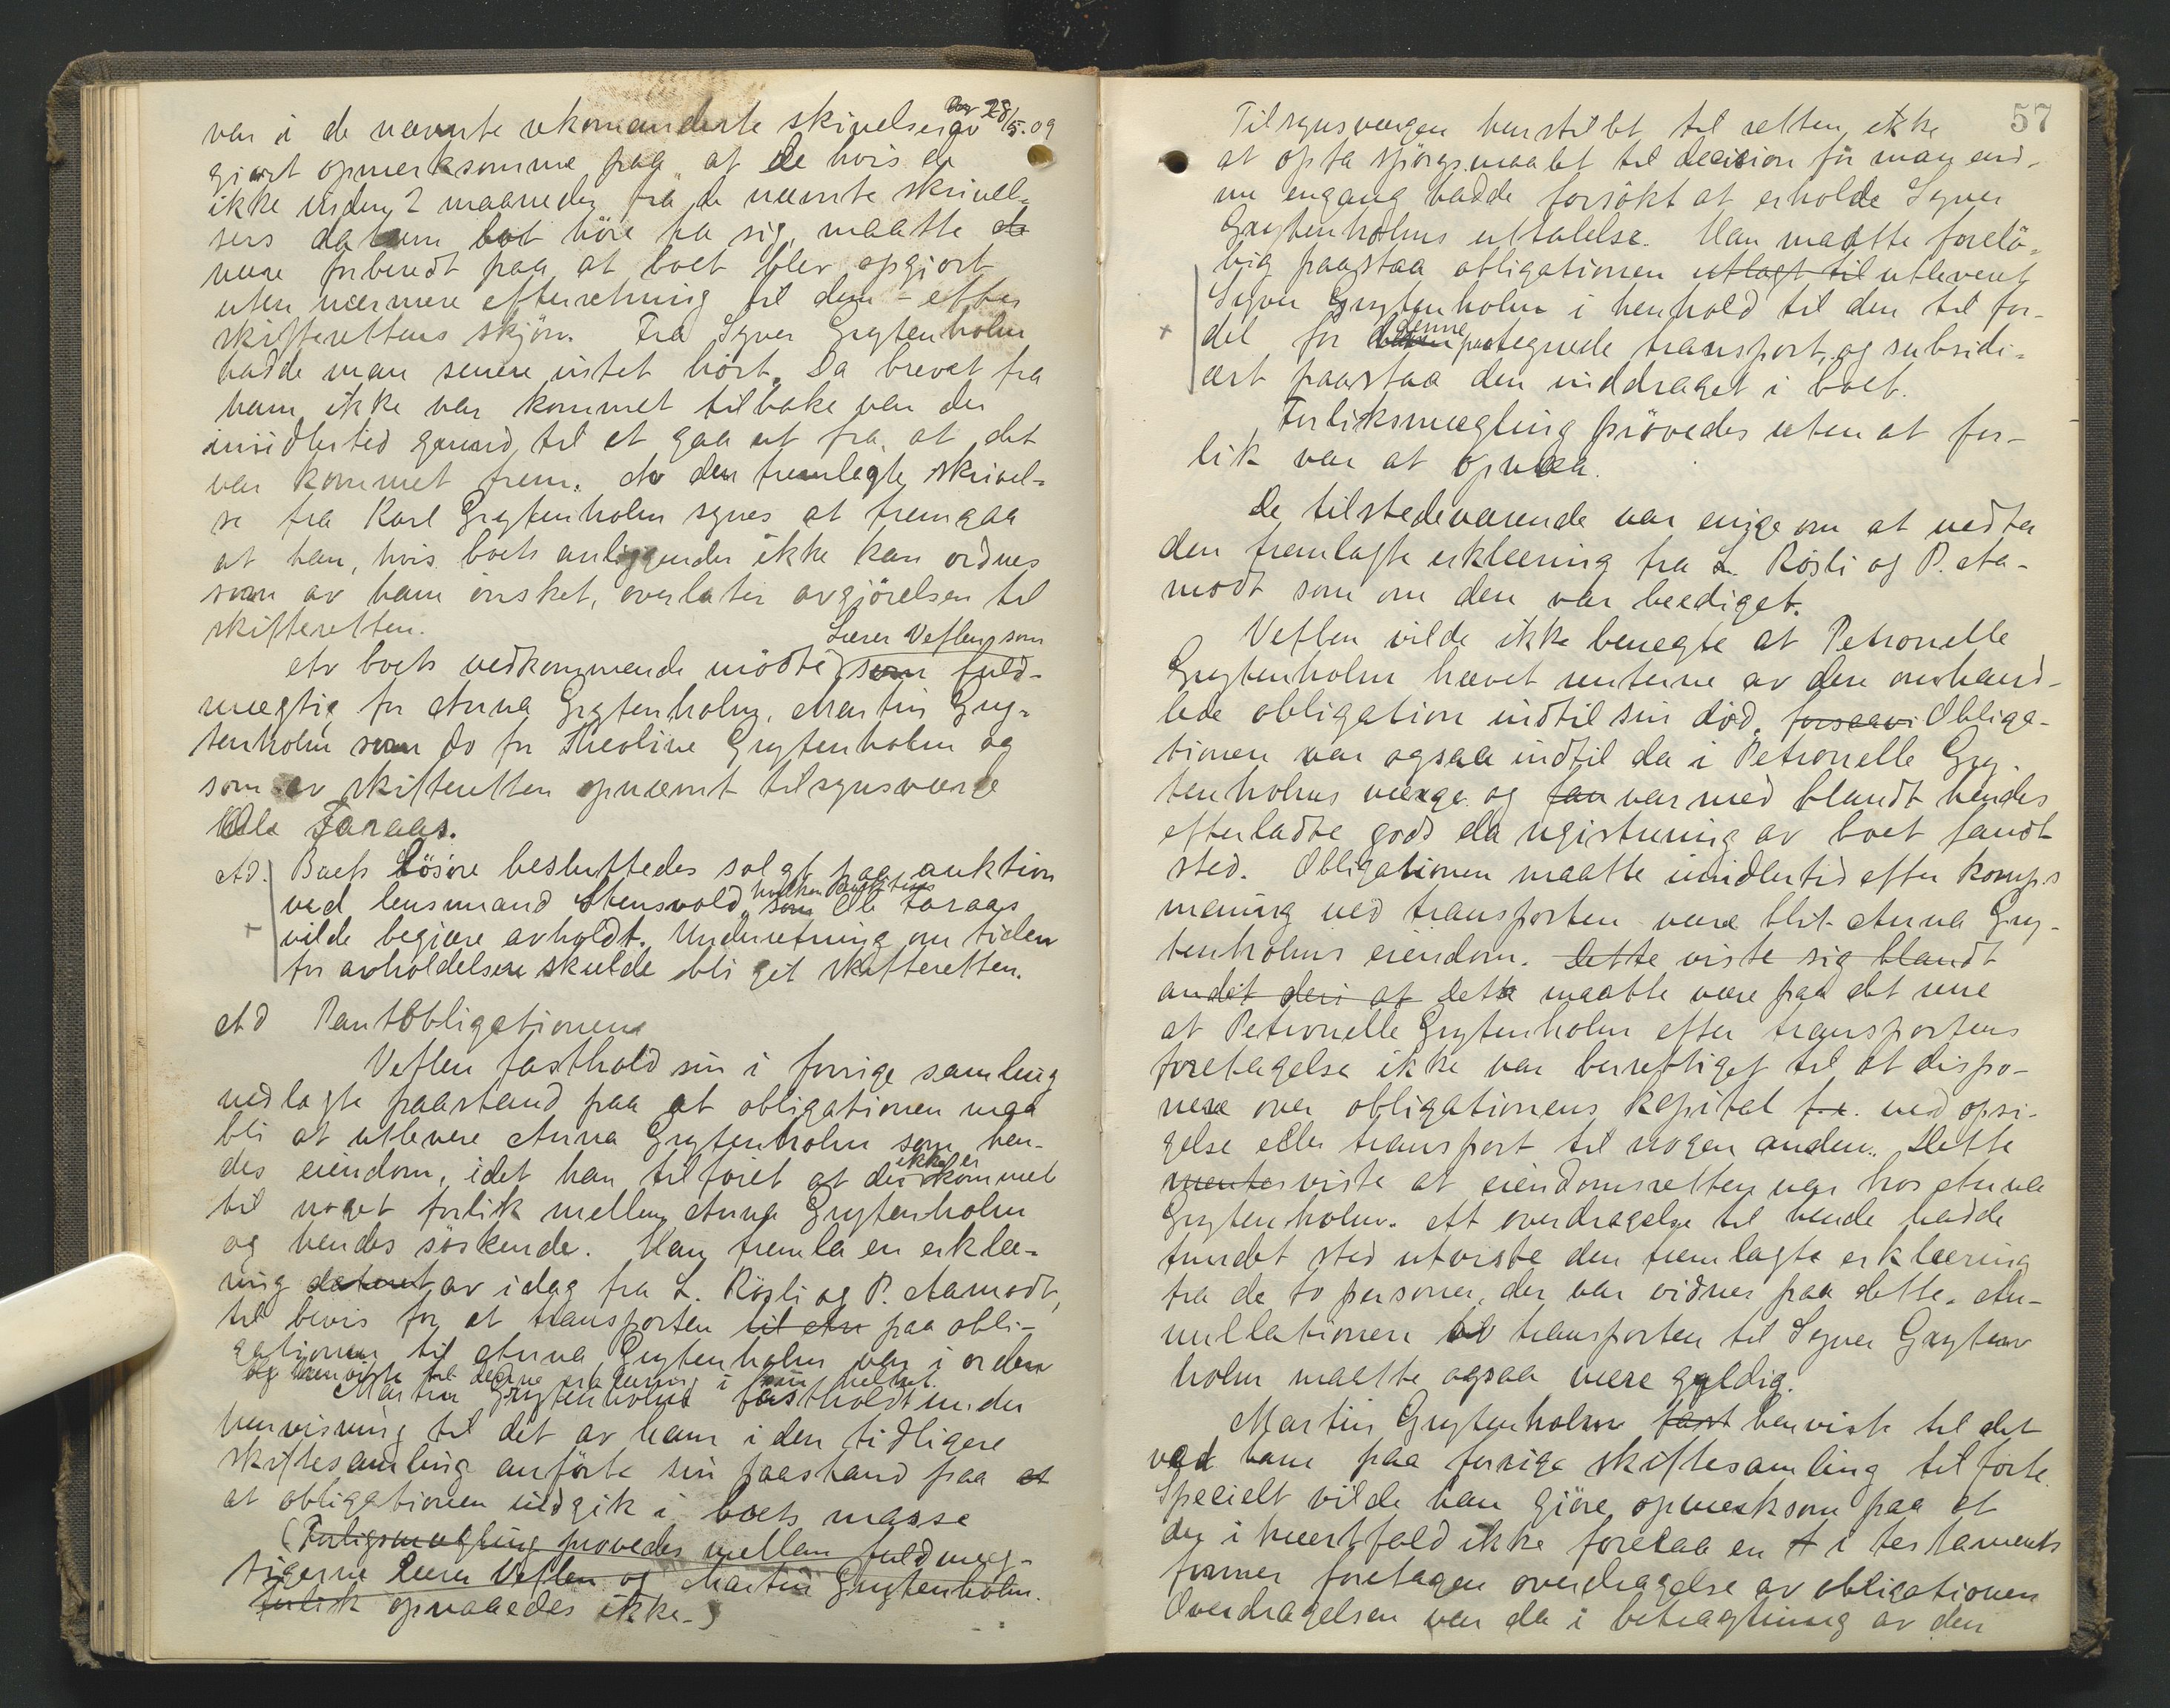 var i de nævnte rekomanderte skrivelser av 28/5.09
gjort opmerksomme paa at de hvis de
ikke inden 2 maaneder fra de nævnte skrivel-
sers datum lot høre fra sig, maatte de
være forberedt paa at boet blev opgjort
uten nærmere efterretning til dem - efter
skifterettens skjøn. Fra Syver Grytenholm
hadde man senere intet hørt. Da brevet fra
ham ikke var kommet tilbake var der
imidlertid grund til at gaa ut fra at det
var kommet frem. Av den fremlagte skrivel-
se fra Karl Grytenholm synes at fremgaa
at han, hvis boets anliggender ikke kan ordnes
som av ham ønsket, overlater avgjørelsen til
skifteretten.
Lærer Veflen som
Av boets vedkommende mødte som fuld-
mægtig for Anna Grytenholm, Martin Gry-
tenholm som do for Theoline Grytenholm og
som av skifteretten opnævnt tilsynsværge
Ole Faraas.
Ad. Boets Løsøre besluttedes solgt paa auktion
ved lensmand Stensvold, hvilken auktion
som Ole Faraas
vilde begjære avholdt. Underretning om tiden
for avholdelsen skulde bli git skifteretten.
Ad Pantobligationen
Veflen fastholdt sin i forrige samling
nedlagte paastand paa at obligationen maa
bli at utlevere Anna Grytenholm som hen-
des eiendom, idet han tilføiet at der ikke er kommet
til noget forlik mellem Anna Grytenholm
og hendes søskende. Han fremla en erklæ-
ring dateret av idag fra L. Røsli og P. Aamodt,
til bevis for at transporten til An paa obli-
gationen til Anna Grytenholm var i orden
og henviste til denne erklæring i sin helhet.
Martin Grytenholm fastholdt under
henvisning til det av ham i den tidligere
skiftesamling anførte sin paastand paa at
at obligationen indgik i boets masse
(Forligsmægling prøvedes mellem fuldmæg-
tigerne Lærer Veflen og Martin Grytenholm.
forlik opnaaedes ikke.)
57
Tilsynsværgen henstillet til retten ikke
at opta spørgsmaalet til decision før man end-
nu engang hadde forsøkt at erholde Syver
Grytenholms uttalelse. Han maatte forelø-
big paastaa obligationen utlagt til utleveret
Syver Grytenholm i henhold til den til for-
del for denne paategnede transport, og subsidi-
ært paastaa den inddraget i boet.
Forliksmægling prøvedes uten at for-
lik var at opnaa.
De tilstedeværende var enige om at vedta
den fremlagte erklæring fra L. Røsli og P. Aa-
modt som om den var beediget.
Veflen vilde ikke benegte at Petronelle
Grytenholm hævet renterne av den omhand-
lede obligation indtil sin død, forsaavi Obliga-
tionen var ogsaa indtil da i Petronelle Gry-
tenholms værge og fan var med blandt hendes
efterladte gods da registrering av boet fandt
sted. Obligationen maatte imidlertid efter komp.s
mening ved transporten være blit Anna Gry-
tenholms eiendom. Dette viste sig blandt
andet deri at Dette maatte være paa det rene
at Petronelle Grytenholm efter transportens
foretagelse ikke var berettiget til at dispo-
nere over obligationens kapital f.x. ved opsi-
gelse eller transport til nogen anden. Dette
mentes viste at eiendomsretten var hos Anna
Grytenholm. At overdragelse til hende hadde
fundet sted utviste den fremlagte erklæring
fra de to personer, der var vidner paa dette. An-
nullationen av transporten til Syver Gryten-
holm maatte ogsaa være gyldig.
Martin Grytenholm fast henviste til det
ved ham paa forrige skiftesamling tilførte.
Specielt vilde han gjøre opmerksom paa at
der i hvertfald ikke forelaa en t i testaments
former foretagen overdragelse av obligationen
Overdragelsen var da i betragtning av den